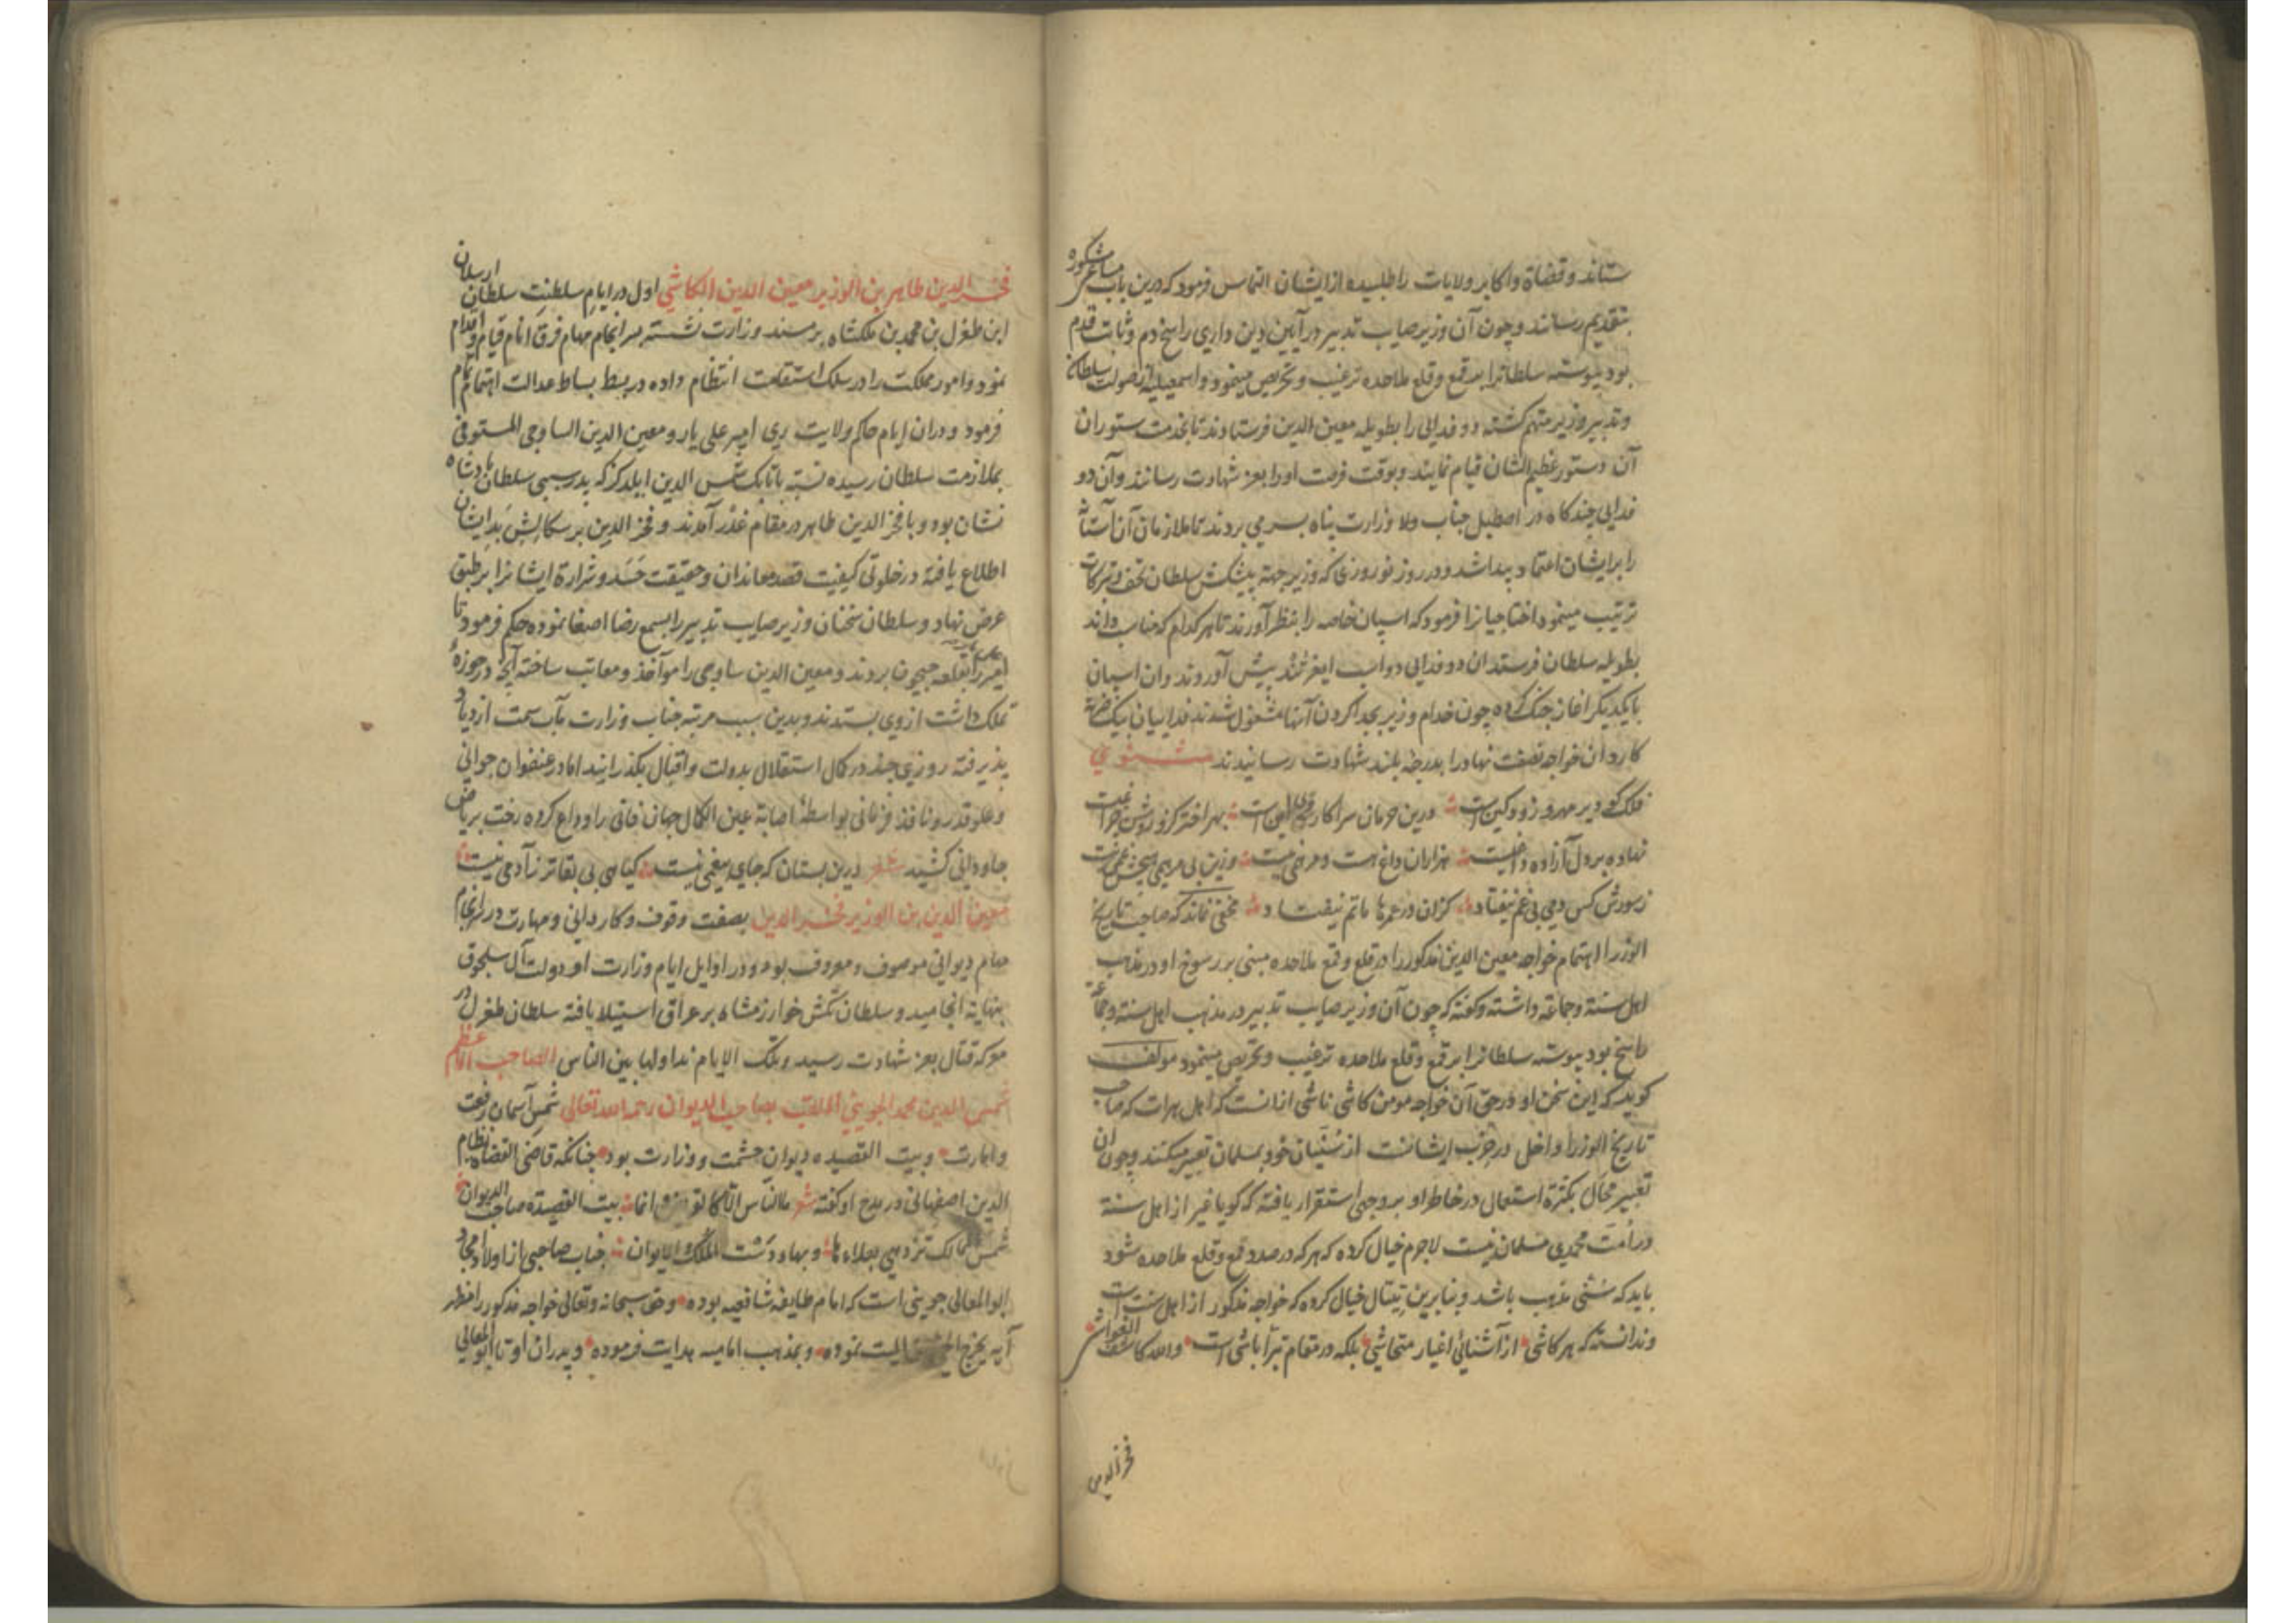 ستاند و قضاة و اکابر ولایات را طلبیده از ایشان التماس فرمود که درین باب مساعی مشکوره
بتقدیم رسانند و چون آن وزیر صایب تدبیر در آیین دین داری راسخ دم و ثابت قدم
بود پیوسته سلطانرا بر قمع و قلع ملاحده ترغیب و تحریص مینمود و اسمعیلیه از صولت سلطان
و تدبیر وزیر متهم کشته دو فدایی را بطویله معین الدین فرستادند تا بخدمت ستوران
آن دستور عظیم الشان قیام نمایند و بوقت فرصت او را بعز شهادت رسانند و آن دو
فدایی چند کاه در اصطبل جناب ولا وزارت پناه بسر می بردند تا ملازمان آن آستان
را بر ایشان اعتماد پیدا شد و در روز نوروزی که وزیر جهة پیشکش سلطان تحف و تبرکات
ترتیب مینمود اختاجیانرا فرمود که اسپان خاصه را بنظر آورند تا هر کدام که مناسب داند
بطویله سلطان فرستد ان دو فدایی دو اسب پیش آوردند و ان اسپان
با یکدیکر اغاز جنک کرده چون خدام وزیر بجدا کردن آنها مشغول شدند فداییان بیک ضربة
کارد ان خواجه نصفت نهاد را بدرجه بلند شهادت رسانیدند مثنوي
فلک کو دیر مهر و زود کین است درین حرمان سرا کار وی این است بهر اختر کزو روشن چراغیست
نهاده بر دل آزاده داغیست هزاران داغ هست و مرهمی نیست وزین بی مرهمی هیچش غمی نیست
ز سورش کس دمی بی غم نیفتاد کزان در عمرها ماتم نیفتاد مخفی نماند که صاحب تاریخ
الوزرا اهتمام خواجه معین الدین مذکور را در قلع و قمع ملاحده مبنی بر رسوخ او در مذهب
اهل سنة و جماعة داشته و کفته که چون آن وزیر صایب تدبیر در مذهب اهل سنة و جماعة
راسخ بود پیوسته سلطانرا بر قمع و قلع ملاحده ترغیب و تحریص مینمود مولف
کوید که این سخن او در حق آن خواجه مومن کاشی ناشی ازانست که اهل هرات که صاحب
تاریخ الوزرا داخل در حزب ایشانست از سنیان خود بمسلمان تعبیر میکنند و چون ان
تعبیر محال بکثرة استعمال در خاطر او بر وجهی استقرار یافته که کویا غیر از اهل سنة
در امت محمدی مسلمان نیست لاجرم خیال کرده که هر که در صدد قمع و قلع ملاحده شود
باید که سنی مذهب باشد و بنابرین خیال کرده که خواجه مذکور از اهل سنت است
و ندانسته که هر کاشی از آشنائی اغیار متحاشی بلکه در مقام تبرا باشی است والله کاشف الغواشی
فخر الدین
فخر الدین طاهر بن الوزیر معین الدین الکاشي اول در ایام سلطنت سلطان ارسلان
ابن طغرل بن محمد بن ملکشاه بر مسند وزارت نشسته بسر انجام مهام فرق انام قیام و اقدام
نمود و امور مملکت را در سلک استقامت انتظام داده در بسط بساط عدالت اهتمام تمام
فرمود و دران ایام حاکم ولایت ری امیر علی یار و معین الدین الساوجی المستوفی
بملازمت سلطان رسیده نسبة باتابک شمس الدین ایلدکز که پدر سببی سلطان پادشاه
نشان بود و با فخر الدین طاهر در مقام غدر آمدند و فخر الدین بر سکالش بد ایشان
اطلاع یافته در خلوتی کیفیت قصد معاندان و حقیقت حسد و شرارة ایشانرا بر طبق
عرض نهاد و سلطان سخنان وزیر صایب تدبیر را بسمع رضا اصغا نموده حکم فرمود تا
امیر علی یار را بقلعه جیحون بردند و معین الدین ساوجی را موآخذ و معاتب ساخته آنچه در حوزهٔ
تملک داشت ازوی بستدند و بدین سبب مرتبه جناب وزارت مآب سمت ازدیاد
پذیرفته روزی چند در کمال استقلال بدولت و اقبال بکذرانید اما در عنفوان جوانی
و علو قدر و نفاذ فرمانی بواسطهٔ اصابة عین الکمال جهان فانی را وداع کرده رخت بریاض
جاودانی کشید شعر درین بستان که جای بیغمی نیست کیاهی بی بقاتر ز آدمی نیست
معین الدین بن الوزیر فخر الدین بصفت وقوف و کاردانی و مهارت در سرانجام
مهام دیوانی موصوف و معروف بود و در اوایل ایام وزارت او دولت آل سلجوق
بنهایة انجامید و سلطان تکش خوارزمشاه بر عراق استیلا یافته سلطان طغرل در
معرکه قتال بعز شهادت رسید و تلک الایام نداولها بین الناس الصاحب الاعظم
شمس الدین محمد الجوینی الملقب بصاحب الدیوان رحمه الله تعالی شمس آسمان رفعت
و امارت و بیت القصیده دیوان حشمت و وزارت بود چنانکه قاضی القضاة نظام
الدین اصفهانی در مدح او کفته شعر ما الناس الا کالقریض و انما بیت القصیدة صاحب الدیوان
شمس ممالک تزدهی بعلاءها و بهاء دست الملک و الایوان جناب صاحبی از اولاد امجاد
ابو المعالی جوینی است که امام طایفه شافعیه بوده و حق سبحانه و تعالی خواجه مذکور را مظهر
آیه یخرج الحی من المیت نموده و بمذهب امامیه هدایت فرموده و پدران او تا ابو المعالی